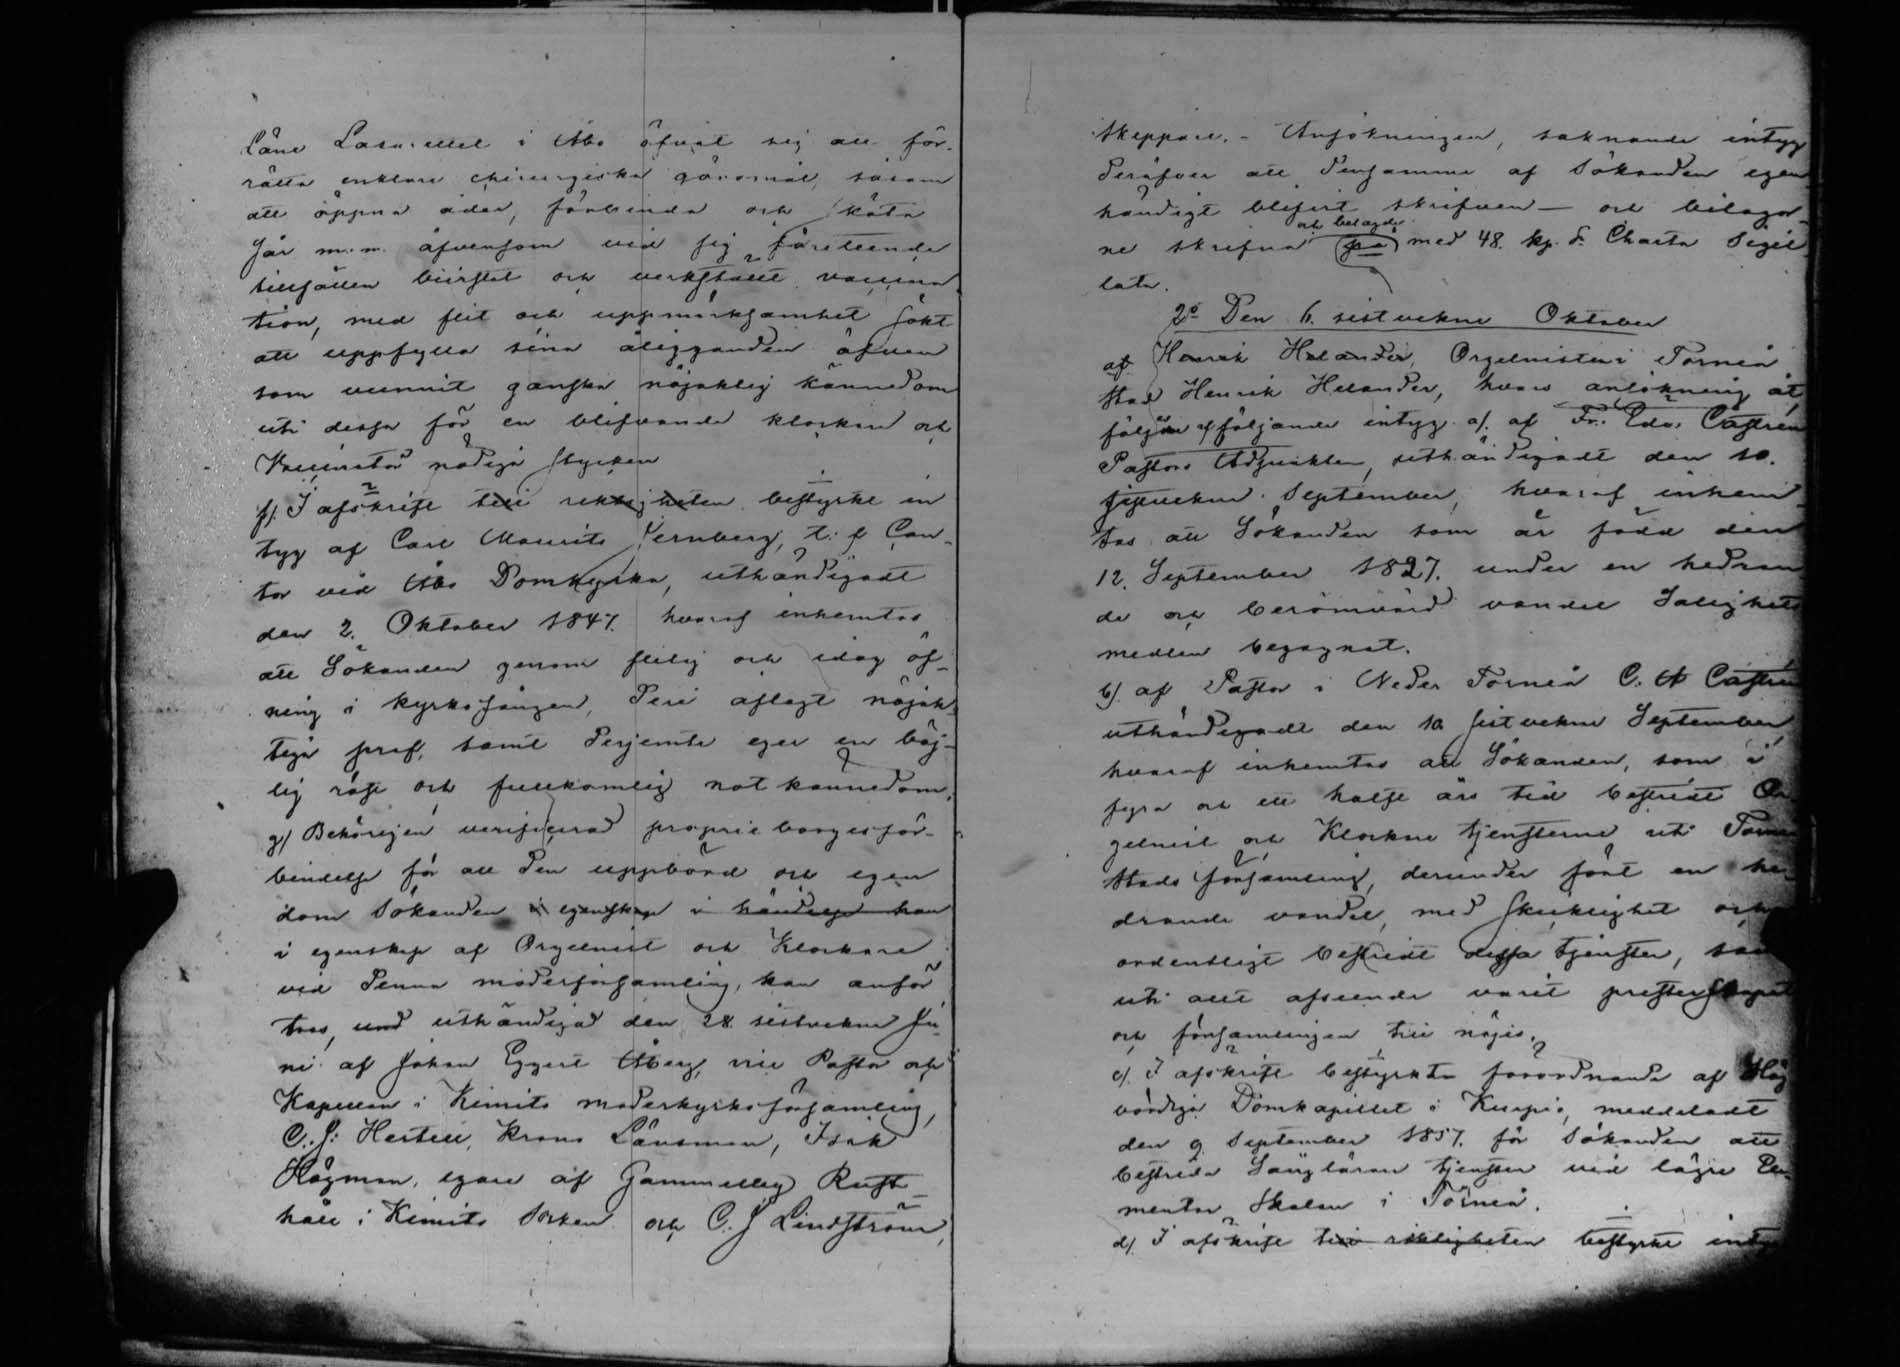 Läns Lasarettet i Åbo öfvat sig att för-
rätta enklare chirurgiska göromål, såsom
att öppna åder, förbinda och sköta
sår m.m. äfvensom vid sig företeende
tillfällen biträdt och verkstält vaccina
tion, med flit och uppmärksamhet sökt
att uppfylla sina åligganden äfven
som vunnit ganska nöjaktig kännedom
uti dessa för en blifvande klockare och
Vaccinatör nödiga stycken
f/. I afskrift till riktigheten bestyrkt in
tyg af Carl Maurits Sernberg, t.f. Can-
tor vid Åbo Domkyrka, uthändigadt
den 2. Oktober 1847. hvaraf inhemtas
att Sökanden genom flitig och idog öf-
ning i kyrkosången, deri aflagt nöjak-
tiga prof, samt derjemte eger en böj-
lig röst och fullkomlig notkännedom.
g/ Behörigen verificerad proprie borgesför-
bindelse för all den uppbörd och egen
dom Sökanden i egenskap i händelse kan
i egenskap af Orgelnist och Klockare
vid denna moderförsamling, kan anför
tros, uthändigad den 28 sistvekne Ju
ni af Johan Eggert Åberg, vice Pastor och
Kapellan i Kimito moderkyrkoförsamling,
C.J: Hertell, Krono Länsman, Isak
Högman, egare af Gammelby Rust-
håll i Kimito Socken och C. J Lindström,
Skeppare. - Ansökningen, saknande intyg
deröfver att densamma af Sökanden egen
händigt blifvit skrifven - och bilagor-
ne skrifna och belagde på med 48. kp. s. Charta Sigil
lata.
2o Den 6. sistvekne Oktober
af Henrik Helander, Orgelnisten i Torneå
stad Henrik Helander, hvars ansökning åt
följdes af följande intyg a/. af Fr: Edv: Castrén
Pastors Adjunkten, uthändigadt den 10.
sistvekne September, hvaraf inhem
tas att Sökanden som är född den
12. September 1827. under en hedran
de och berömvärd vandel Salighets
medlen begagnat.
b/ af Pastor i Neder Torneå C. A Castrén
uthändigadt den 10 sistvekne September,
hvaraf inhemtas att Sökanden, som i
fyra och ett halft års tid bestridt Or
gelnist och Klockare tjensterne uti Torneå
Stads församling, derunder fört en he-
drande vandel, med skicklighet och
ordentligt bestridt dessa tjenster, samt
uti allt afseende varit presterskapet
och församlingen till nöjes.
c/. I afskrift bestyrkta förordnande af Hög
vördiga Domkapitlet i Kuopio, meddeladt
den 9 September 1857. för Sökanden att
bestrida Sånglärare tjensten vid lägre Ele-
mentar Skolan i Torneå.
d/. I afskrift till riktigheten bestyrkt intyg